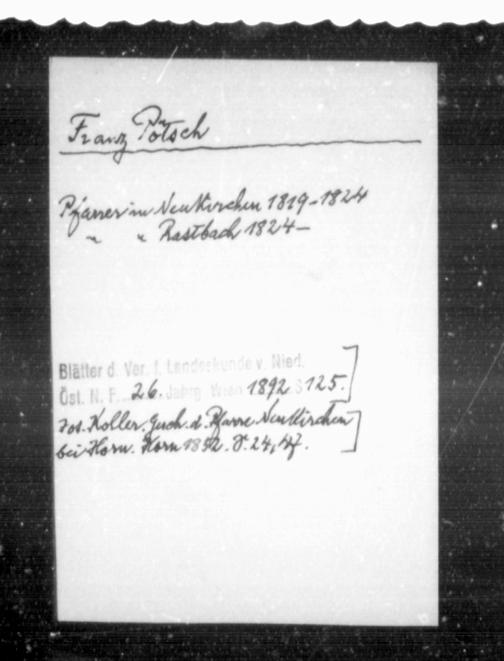 Franz Pötsch
Pfarrer in Neukirchen 1819-1824
" " Rastbach 1824-
Blätter d. Ver. f. Landeskunde v. Nied.
Öst. N. F. 26. Jahrg. Wien 1892 S 125.
Jos. Koller. Gesch. d. Pfarre Neukirchen
bei Horn. Horn 1892. S. 24, 47.